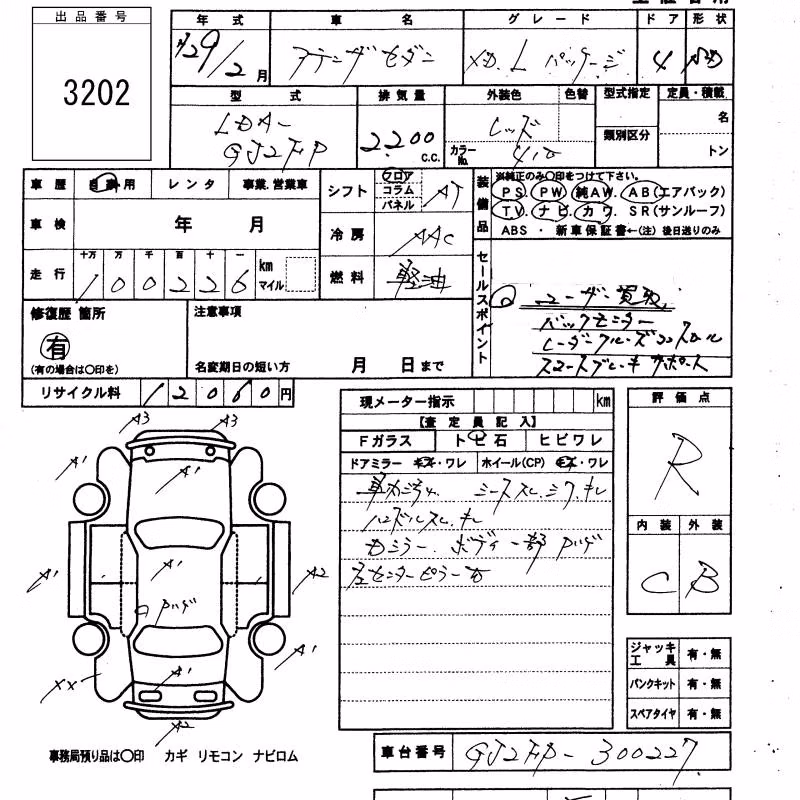 出品番号
3202
年式 車名 グレード ドア 形状
29/2月 アテンザセダン XD L パッケージ 4
型式 排気量 外装色 色替 型式指定 定員・積載
LDA-
GJ2FP
2200 c.c.
レッド
カラーNo. 41V
類別区分
名
トン
車歴 自家用 レンタ 事業.営業車
車検 年 月
走行 十万 万 千 百 十 一
100226 km マイル
シフト フロア コラム パネル AT
冷房 AAC
燃料 軽油
装備品
※純正のみ〇印をつけて下さい。
PS PW 純AW. AB(エアバック)
TV. ナビ. カワ. SR(サンルーフ)
ABS ・ 新車保証書←(注) 後日送りのみ
セールスポイント
ユーザー買取
バックモニター
レーダークルーズコントロール
スマートブレーキサポート
修復歴 箇所
有
(有の場合は〇印を)
注意事項
名変期日の短い方 月 日まで
リサイクル料 12060円
現メーター指示 km
【査定員記入】
Fガラス トビ石 ヒビワレ
ドアミラー キズ・ワレ ホイール(CP) キズ・ワレ
シートスレ.シワ.キレ
ハンドルスレ.キズ
ボディ一部 ハゲ
左センターピラー
評価点
R
内装 外装
C B
ジャッキ工具 有・無
パンクキット 有・無
スペアタイヤ 有・無
A3 A3
A1 A1 A1
A1 A1 A2
ハゲ
XX A1 A1
A2
事務局預り品は〇印 カギ リモコン ナビロム
車台番号 GJ2FP-300227